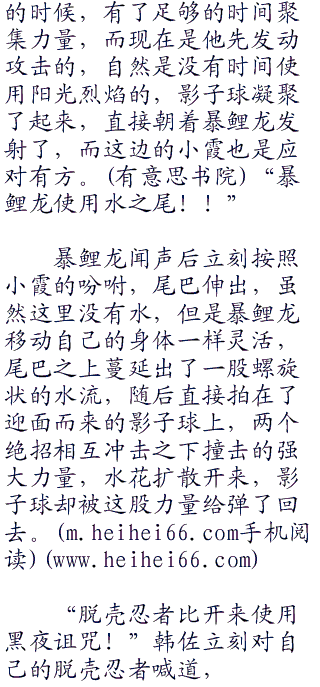 的时候，有了足够的时间聚
集力量，而现在是他先发动
攻击的，自然是没有时间使
用阳光烈焰的，影子球凝聚
了起来，直接朝着暴鲤龙发
射了，而这边的小霞也是应
对有方。(有意思书院)“暴
鲤龙使用水之尾！！”
暴鲤龙闻声后立刻按照
小霞的吩咐，尾巴伸出，虽
然这里没有水，但是暴鲤龙
移动自己的身体一样灵活，
尾巴之上蔓延出了一股螺旋
状的水流，随后直接拍在了
迎面而来的影子球上，两个
绝招相互冲击之下撞击的强
大力量，水花扩散开来，影
子球却被这股力量给弹了回
去。(m.heihei66.com手机阅
读)(www.heihei66.com)
“脱壳忍者比开来使用
黑夜诅咒！”韩佐立刻对自
己的脱壳忍者喊道，